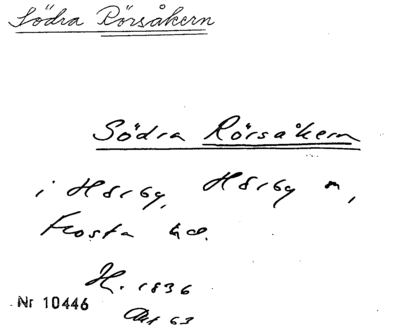 Södra Rörsåkern
Södra Rörsåkern
i Hörby, Hörby n,
Frosta hd.
H. 1836
Akt 63
Nr 10446